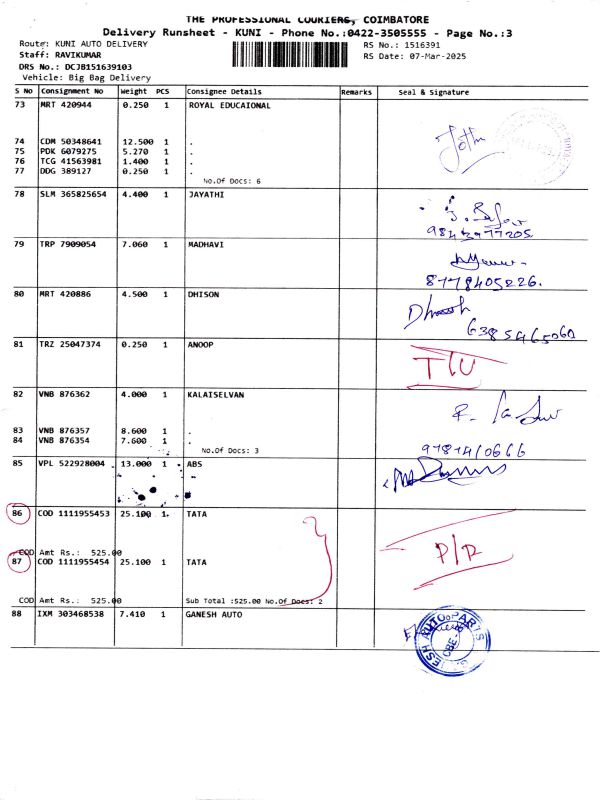 THE PROFESSIONAL COURIERS, COIMBATORE
Delivery Runsheet - KUNI - Phone No.:0422-3505555 - Page No.:3
Route: KUNI AUTO DELIVERY
RS No.: 1516391
Staff: RAVIKUMAR
RS Date: 07-Mar-2025
DRS No.: DCJB151639103
Vehicle: Big Bag Delivery
S No Consignment No Weight PCS Consignee Details Remarks Seal & Signature
73 MRT 420944 0.250 1 ROYAL EDUCAIONAL
74 CDM 50348641 12.500 1 .
75 PDK 6079275 5.270 1 .
76 TCG 41563981 1.400 1 .
77 DDG 389127 0.250 1 .
No.Of Docs: 6
78 SLM 365825654 4.400 1 JAYATHI
79 TRP 7909054 7.060 1 MADHAVI
8778405226.
80 MRT 420886 4.500 1 DHISON
6385465060
81 TRZ 25047374 0.250 1 ANOOP
82 VNB 876362 4.000 1 KALAISELVAN
83 VNB 876357 8.600 1 .
84 VNB 876354 7.600 1 .
No.Of Docs: 3
85 VPL 522928004 13.000 1 ABS
86 COD 1111955453 25.100 1 TATA
COD Amt Rs.: 525.00
P/R
87 COD 1111955454 25.100 1 TATA
COD Amt Rs.: 525.00 Sub Total :525.00 No.Of Docs: 2
88 IXM 303468538 7.410 1 GANESH AUTO